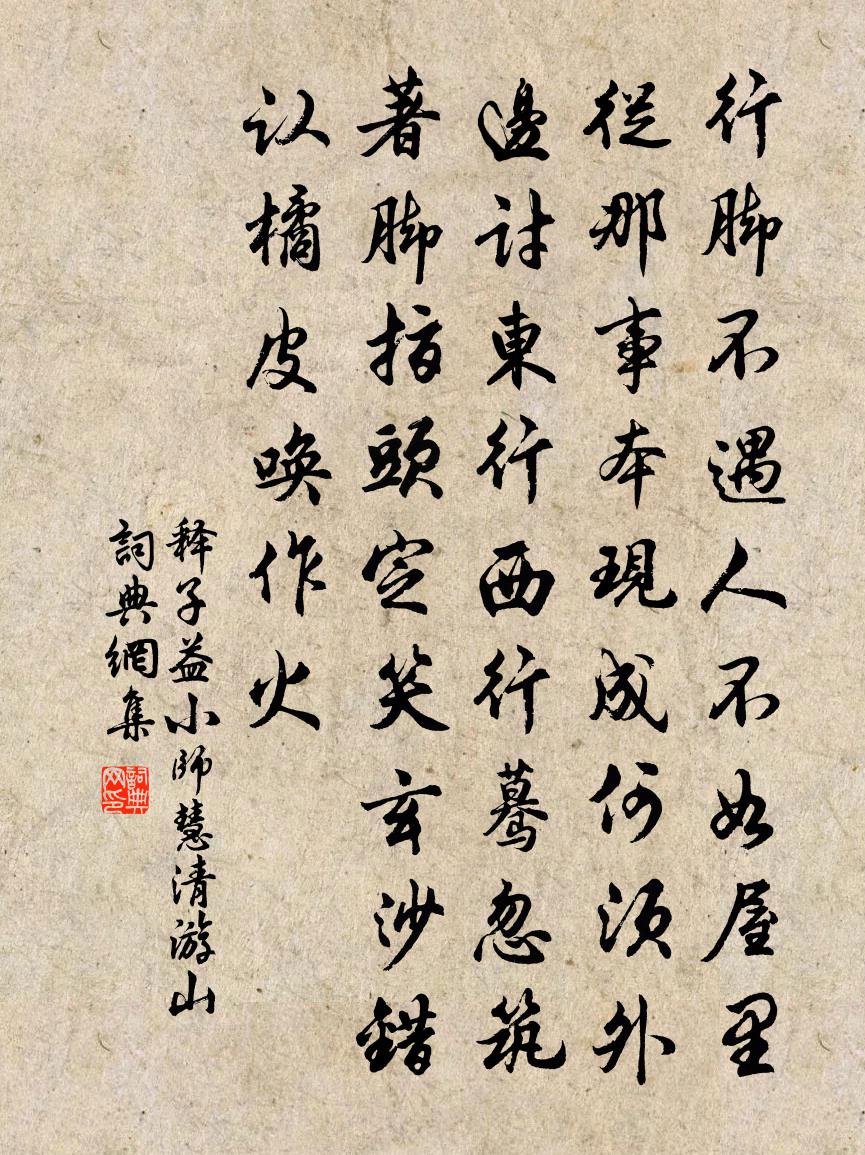 行脚不遇人不如屋里
從那事本現成何須外
邊討東行西行驀忽筑
著脚指頭定笑玄沙錯
认橘皮唤作火
释子益小师慧清游山
詞典網集
詞典网印